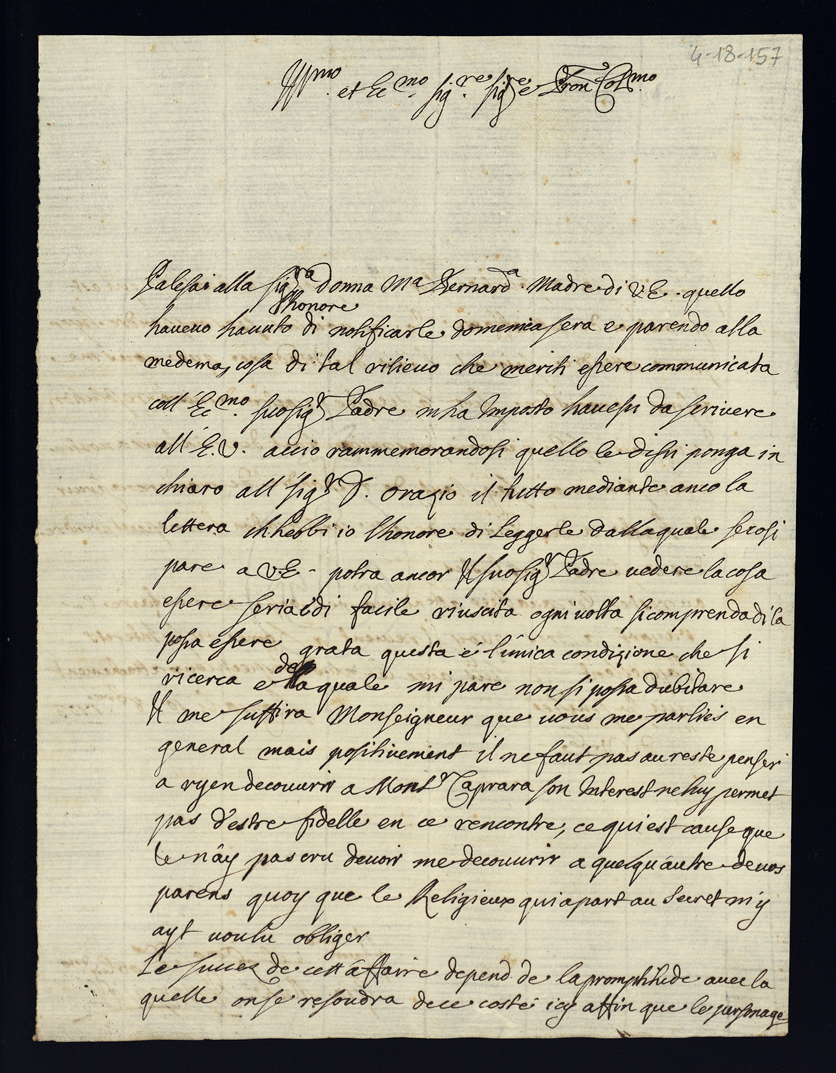 4-18-157
Ill.mo et Ecc.mo Sig.re Sig.re e Pron Col.mo
Palesai alla Sig.ra Donna M.a Bernard.a Madre di V.E. quello
lhonore
haveuo hauuto di notificarle domenica sera e parendo alla
medema, cosa di tal rilieuo che meriti essere communicata
coll' Ecc.mo suo Sig.r Padre m'ha Imposto hauessi da scriuere
all' E.V. accio rammemorandosi quello le dissi ponga in
chiaro all Sig.r D. Orazio il tutto mediante anco la
lettera ch'hebbi io lhonore di Leggerle dalla quale se cosi
pare a V.E. potra ancor Il suo Sig.r Padre uedere la cosa
essere seria e di facile riuscita ogni uolta si comprenda di la
possa essere grata questa é l'unica condizione che si
ricerca e della quale mi pare non si possa dubitare
Il me suffira Monseigneur que uous me parliés en
general mais positiuement il ne faut pas au reste penser
a ryen decouurir a Mons.r Caprara son Interest ne luy permet
pas d'estre fidelle en ce rencontre, ce qui est cause que
Ie n'ày pas cru deuoir me decouurir a quelqu'autre de uos
parens quoy que le Religieux qui a part au secret m'y
ayt uoulu obliger
Le succez de cett'affaire depend de la promptitude auec la
quelle on se resoudra de ce costé icy affin que le personage